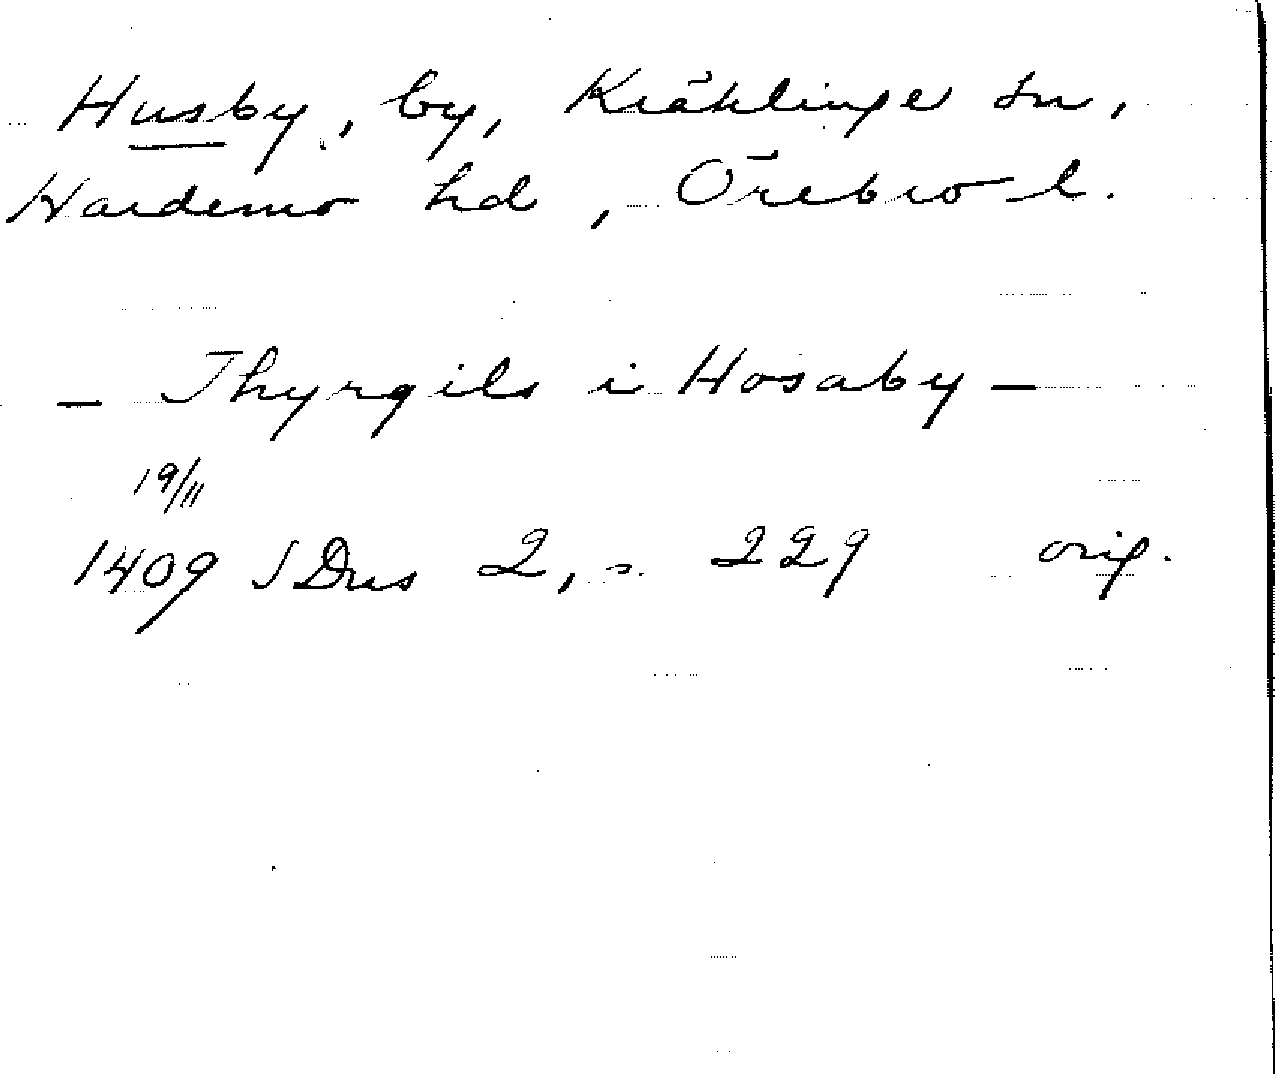 Husby, by, Kräklinge sn,
Hardemo hd, Örebro l.
— Thyrgils i Hosaby —
19/11
1409 SDns 2, s. 229 orig.